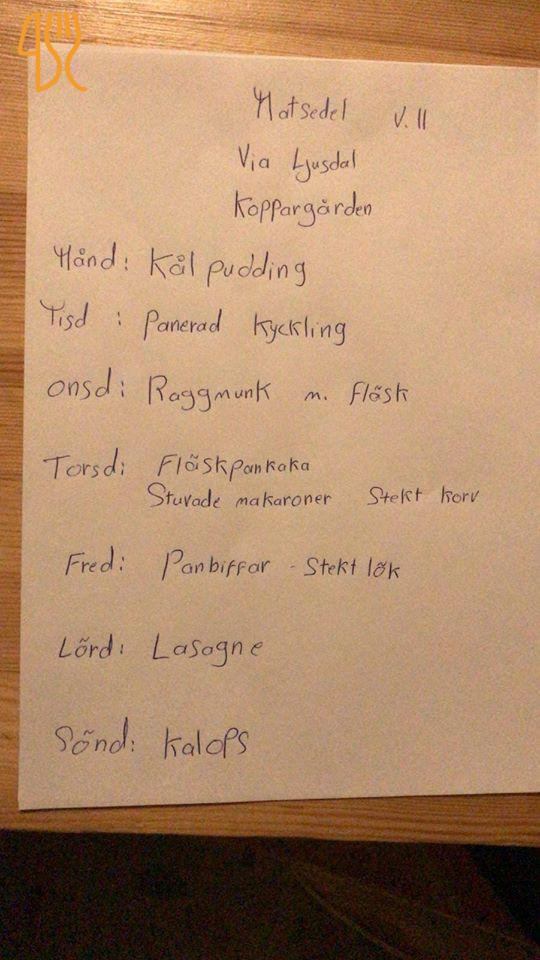 Matsedel V.11
Via Ljusdal
Koppargården
Månd: Kål pudding
Tisd : Panerad Kyckling
Onsd: Raggmunk m. fläsk
Torsd: Fläskpankaka
Stuvade makaroner Stekt korv
Fred: Panbiffar - Stekt lök
Lörd: Lasagne
Sönd: Kalops